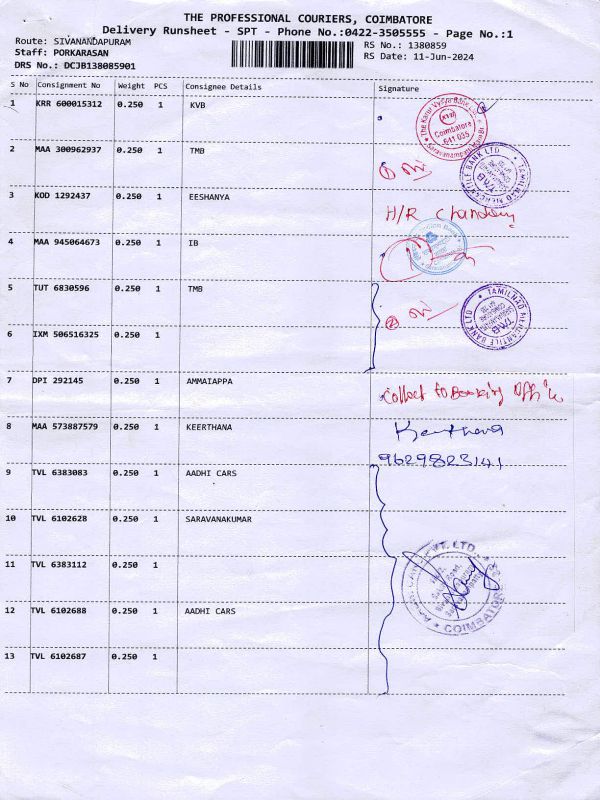 THE PROFESSIONAL COURIERS, COIMBATORE
Delivery Runsheet - SPT - Phone No.:0422-3505555 - Page No.:1
Route: SIVANANDAPURAM
RS No.: 1380859
Staff: PORKARASAN
RS Date: 11-Jun-2024
DRS No.: DCJB138085901
S No Consignment No Weight PCS Consignee Details Signature
1 KRR 600015312 0.250 1 KVB
The Karur Vysya Bank Ltd.
KVB
Coimbatore
641 035
2 MAA 300962937 0.250 1 TMB
①
TAMILNAD MERCANTILE BANK LTD
TMB
3 KOD 1292437 0.250 1 EESHANYA
H/R
4 MAA 945064673 0.250 1 IB
5 TUT 6830596 0.250 1 TMB
②
TAMILNAD MERCANTILE BANK LTD
TMB
6 IXM 506516325 0.250 1
7 DPI 292145 0.250 1 AMMAIAPPA
Collect to Booking Office
8 MAA 573887579 0.250 1 KEERTHANA
Keerthana
9629823141
9 TVL 6383083 0.250 1 AADHI CARS
10 TVL 6102628 0.250 1 SARAVANAKUMAR
11 TVL 6383112 0.250 1
PVT. LTD.
COIMBATORE
12 TVL 6102688 0.250 1 AADHI CARS
13 TVL 6102687 0.250 1